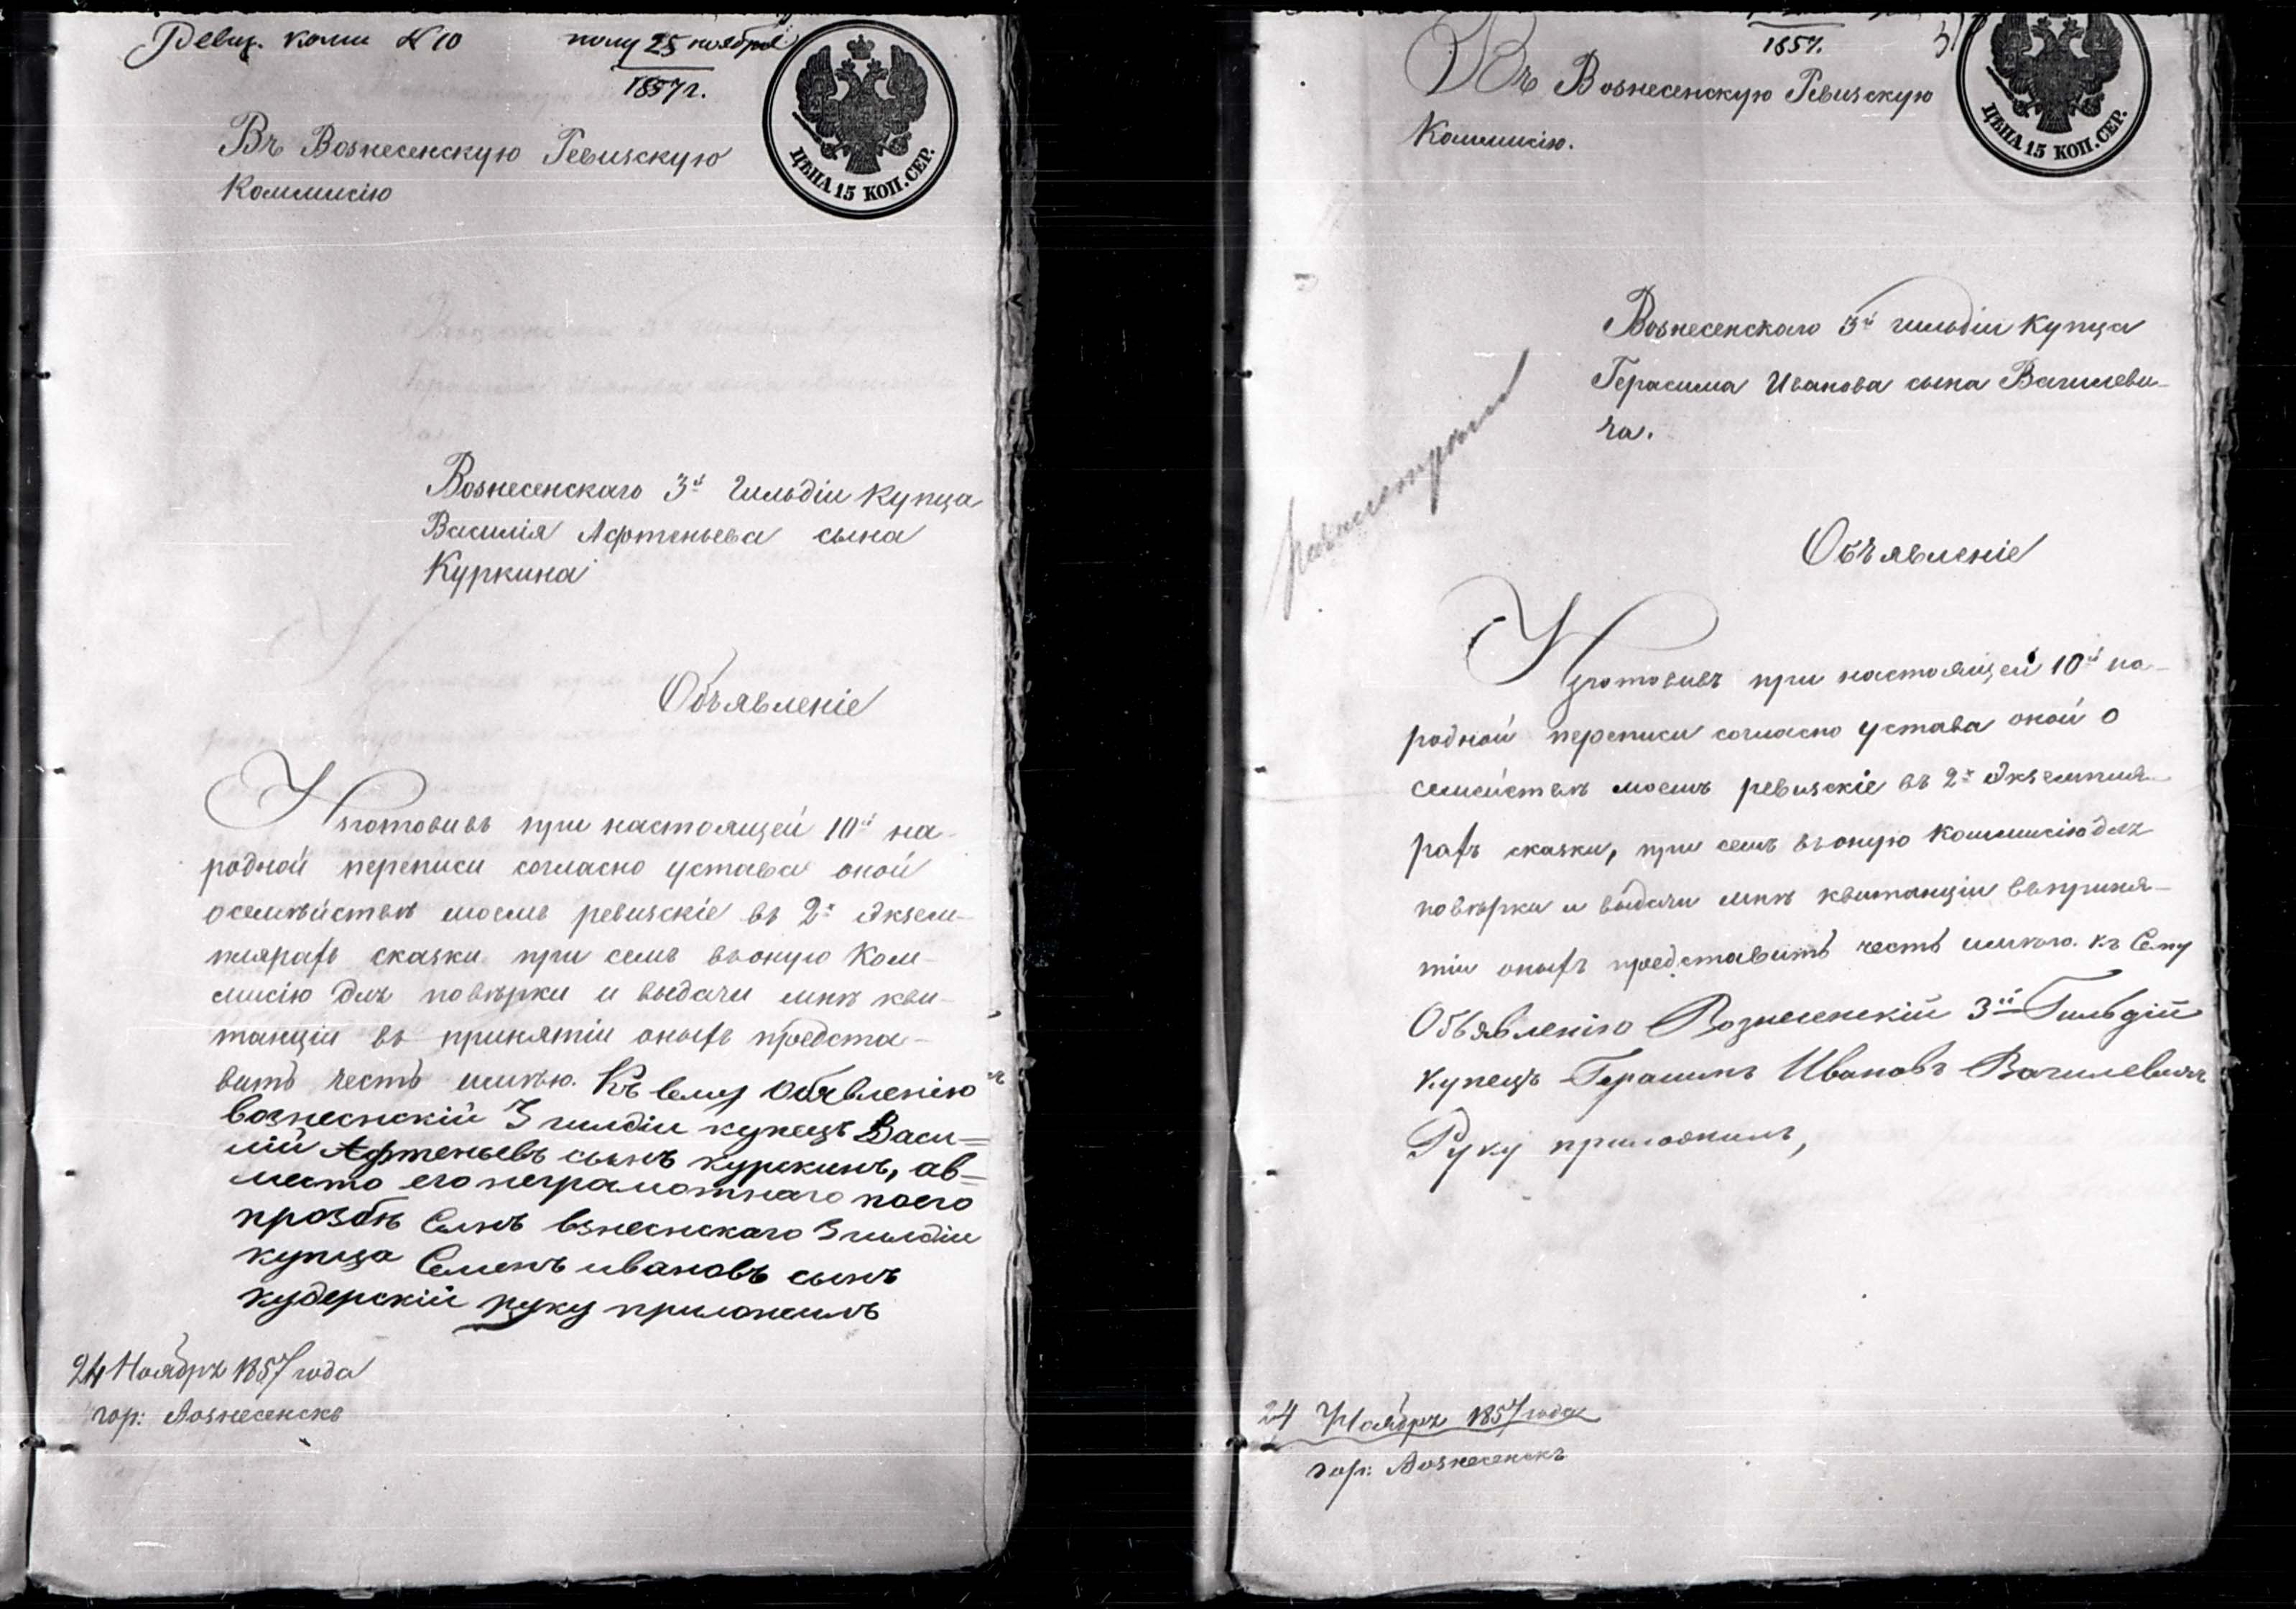 Ревиз. комм № 10 полу 25 ноября
1857 г.
ЦѢНА 15 КОП. СЕР.
Въ Вознесенскую Ревизскую
Коммисію
Вознесенскаго 3й Гильдіи Купца
Василія Афтеньева сына
Куркина
Объявленіе
Изготовивъ при настоящей 10й на-
родной переписи согласно устава оной
о семѣйствѣ моемъ ревизскіе въ 2х Экзем-
плярахъ сказки при семъ въ оную Ком-
мисію для повѣрки и выдачи мнѣ кви-
танціи въ принятіи оныхъ предста-
вить честь имѣю. Къ сему Обявленію
вознеснскій 3 гилдіи купецъ Васи=
лій Афтеньевъ сынъ куркинъ, ав=
место его неграмотнаго поего
прозбѣ Сынъ взнеснскаго 3 гилдіи
купца Семенъ ивановъ сынъ
кудерскій руку приложилъ
24 Ноября 1857 года
гор: Вознесенскъ
1857.
ЦѢНА 15 КОП. СЕР.
Въ Вознесенскую Ревизскую
Коммисію.
Вознесенскаго 3й гильдіи Купца
Герасима Иванова сына Вагилеви-
ча.
Объявленіе
Изготовивъ при настоящей 10й на-
родной переписи согласно устава оной о
семействѣ моемъ ревизскіе въ 2х Экземпля-
рахъ сказки, при семъ въ оную Коммисію для
повѣрки и выдачи мнѣ квитанціи въ приня-
тіи оныхъ представить честь имѣю. Къ Сему
Объявленію Вознесенскій 3й Гильдій
Купецъ Герасимъ Ивановъ Вагилевичъ
Руку приложилъ,
24 Ноября 1857 года
гор: Вознесенскъ